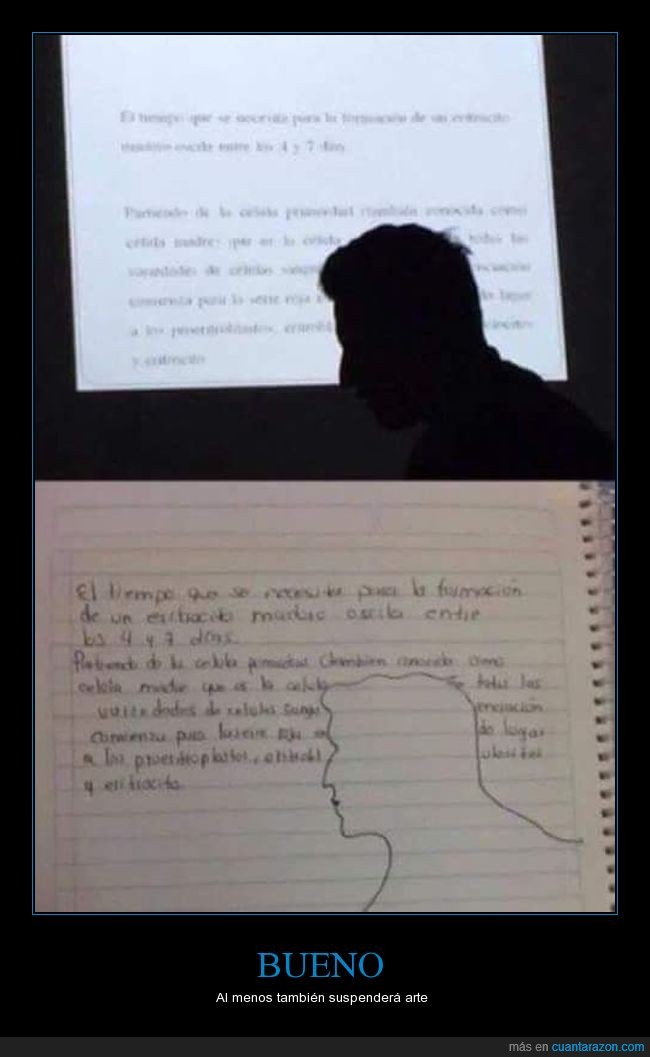 El tiempo que se necesita para la formación de un eritrocito
maduro oscila entre los 4 y 7 días
Partiendo de la célula primordial (también conocida como
célula madre) que es la célula todas las
variedades de células
comienza para la serie roja lugar
a los proeritroblastos,
y eritrocito
El tiempo que se necesita para la formación
de un eritrocito maduro oscila entre
los 4 y 7 días.
de la celula (tambien conocida como
celula madre que es la celula todas las
de celulas sangu enciación
Comienza para la serie roja do lugar
a los
y eritrocito.
BUENO
Al menos también suspenderá arte
más en cuantarazon.com